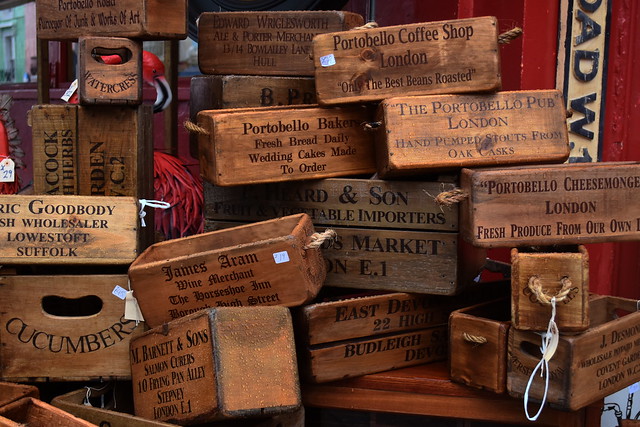 Portobello Road
Purveyor Of Junk & Works Of Art
WATERCRESS
EDWARD WRIGGLESWORTH
ALE & PORTER MERCHANT
13/14 BOWLALLEY LANE
HULL
Portobello Coffee Shop
London
"Only The Best Beans Roasted"
Portobello Baker
Fresh Bread Daily
Wedding Cakes Made
To Order
"THE PORTOBELLO PUB
LONDON
HAND PUMPED STOUTS FROM
OAK CASKS
"PORTOBELLO CHEESEMONGE
LONDON
FRESH PRODUCE FROM OUR OWN
ACOCK
HERBS
RDEN
W.C.2
RIC GOODBODY
SH WHOLESALER
LOWESTOFT
SUFFOLK
EARD & SON
FRUIT & VEGETABLE IMPORTERS
S MARKET
ON E.1
James Aram
Wine Merchant
The Horseshoe Inn
Borough High Street
CUCUMBERS
M. BARNETT & SONS
SALMON CURERS
10 FRYING PAN ALLEY
STEPNEY
LONDON E.1
EAST DEVO
22 HIGH
BUDLEIGH S
DEV
J. DESMO
WHOLESALE
COVENT GAR
LONDON W.C.
OAD W
29